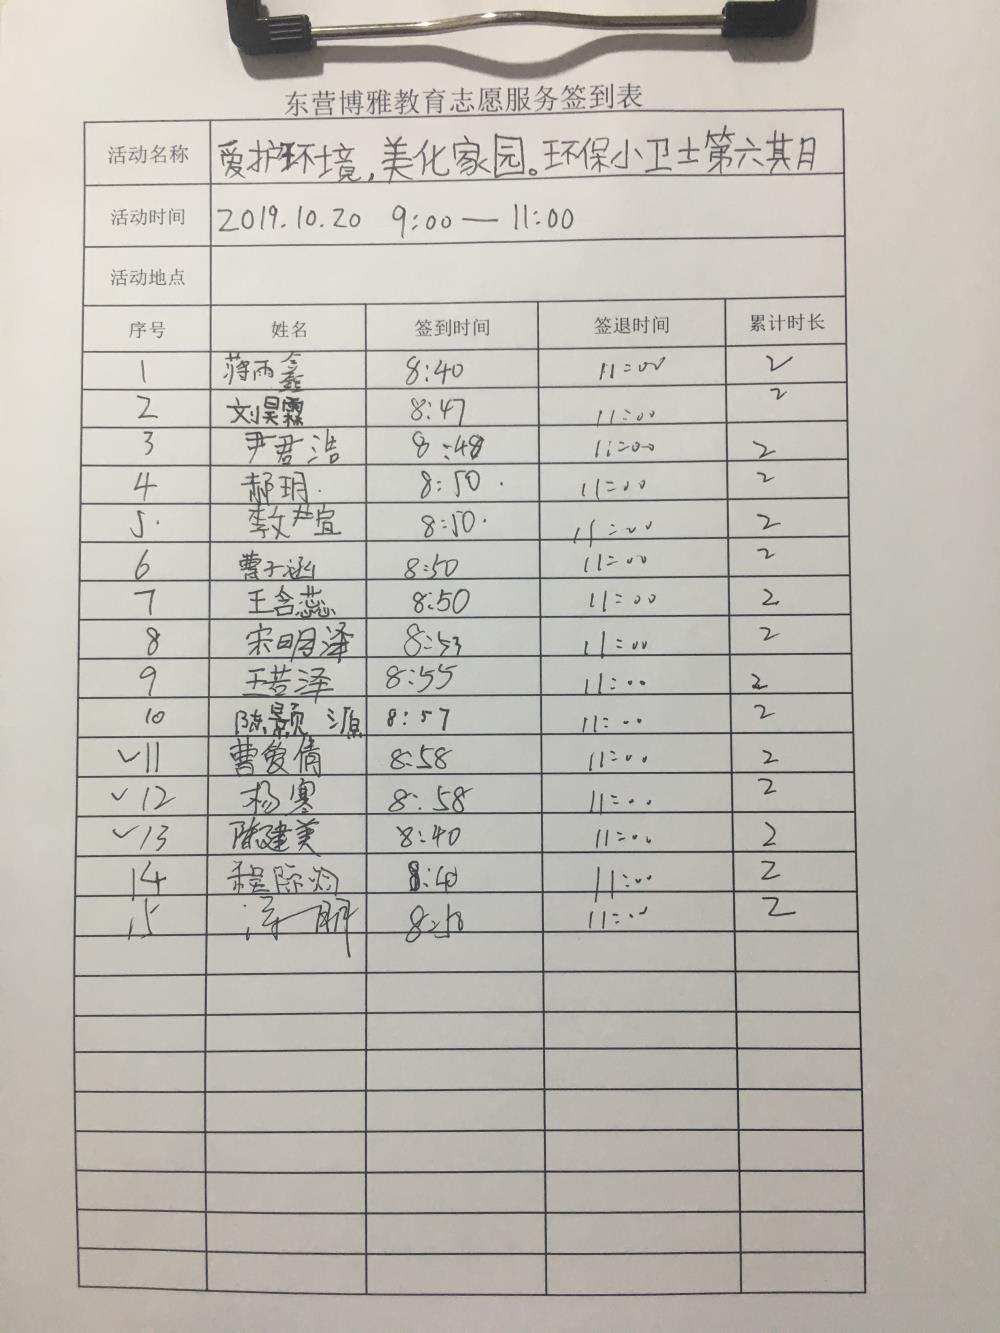 东营博雅教育志愿服务签到表
活动名称 爱护环境,美化家园。环保小卫士第六期
活动时间 2019.10.20 9:00—11:00
活动地点
序号 姓名 签到时间 签退时间 累计时长
1 蒋雨鑫 8:40 11:00 2
2 刘昊霖 8:47 11:00 2
3 尹君浩 8:48 11:00 2
4 郝玥 8:50 11:00 2
5 8:50 11:00 2
6 曹子涵 8:50 11:00 2
7 王含蕊 8:50 11:00 2
8 宋明泽 8:53 11:00 2
9 王若泽 8:55 11:00 2
10 陈颢源 8:57 11:00 2
✓11 曹爱倩 8:58 11:00 2
✓12 杨寒 8:58 11:00 2
✓13 陈建美 8:40 11:00 2
14 8:40 11:00 2
15 8:50 11:00 2